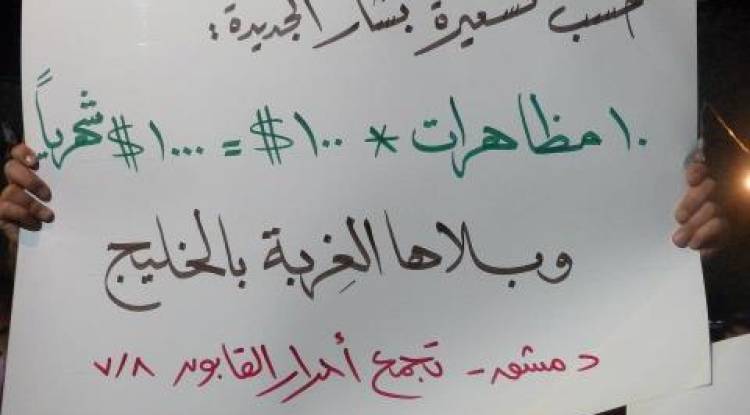 حسب تسعيرة بشار الجديدة :
١٠ مظاهرات * ١٠٠$ = ١٠٠٠$ شهرياً
وبلاها الغِربة بالخليج
دمشق - تجمع أحرار القابون ٧/٨